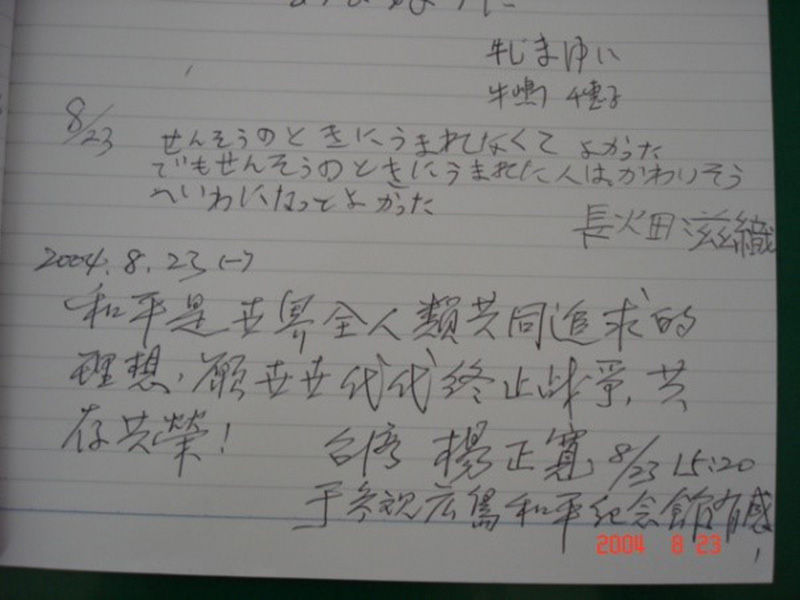 牛じまゆい
牛嶋
8/23
せんそうのときにうまれなくてよかった
でもせんそうのときにうまれた人は、かわいそう
へいわになってよかった
長火田滋織
2004.8.23(一)
和平是世界全人類共同追求的
理想，願世世代代終止战爭，共
存共榮！
台湾 楊正寬 8/23 15:20
于参視広島和平紀念館有感
2004 8 23